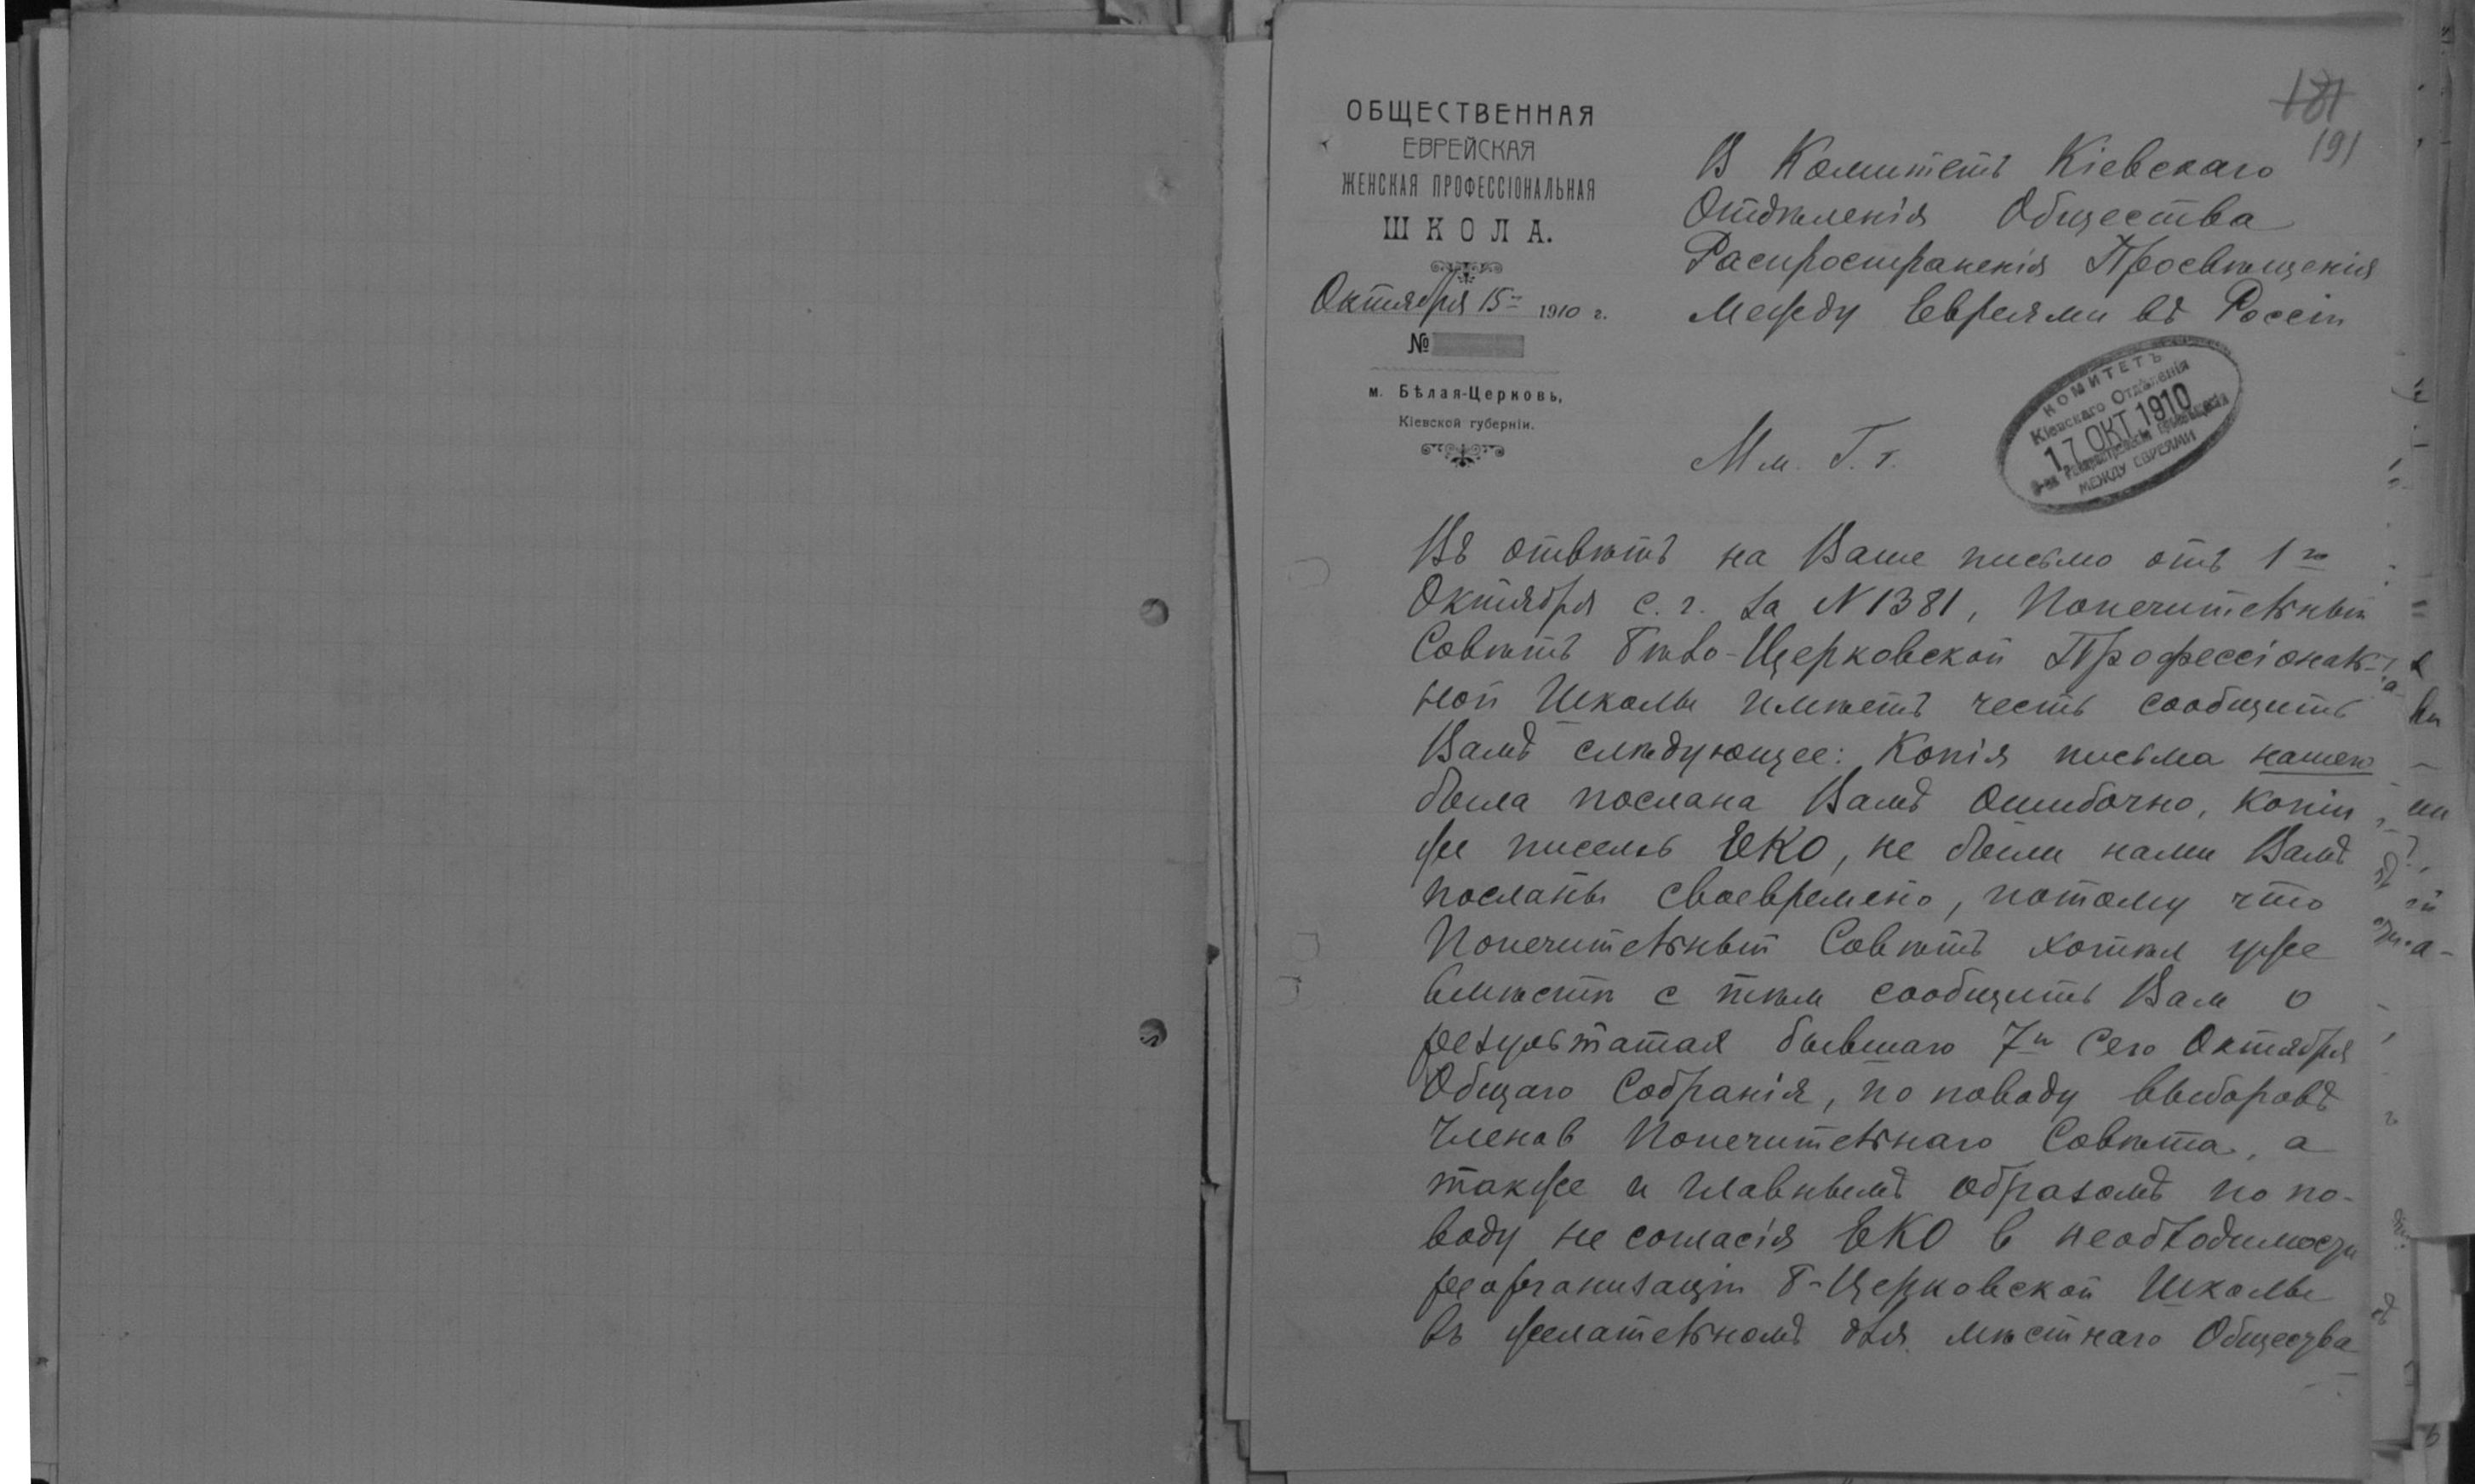 181
191
ОБЩЕСТВЕННАЯ
ЕВРЕЙСКАЯ
ЖЕНСКАЯ ПРОФЕССІОНАЛЬНАЯ
ШКОЛА.
Октября 15го 1910 г.
№
м. Бѣлая-Церковь,
Кіевской губерніи.
В Комитетъ Кіевскаго
Отдѣленія Общества
Распространенія Просвѣщенія
между Евреями въ Россіи
КОМИТЕТЪ
Кіевскаго Отдѣленія
17 ОКТ. 1910
О-ва Распространенія Просвѣщенія
МЕЖДУ ЕВРЕЯМИ
Мм. Г.г.
Въ отвѣтъ на Ваше письмо отъ 1го
Октября с. г. за N 1381, Попечительный
Совѣтъ Бѣло-Церковской Профессіональ-
ной Школы имѣетъ честь сообщить
Вамъ слѣдующее: Копія письма нашего
была послана Вамъ ошибочно, копіи
же писемъ ЕКО, не были нами Вамъ
посланы своевремено, потому что
Попечительный Совѣтъ хотѣл уже
вмѣсти с тѣм сообщить Вам о
результатах бывшаго 7го сего Октября
Общаго Собранія, по поводу выборовъ
членов Попечительнаго Совѣта, а
также и главнымъ образомъ по по-
воду не согласія ЕКО в необходимости
реорганизаціи Б-Церковской Школы
въ желательномъ для мѣстнаго Общества